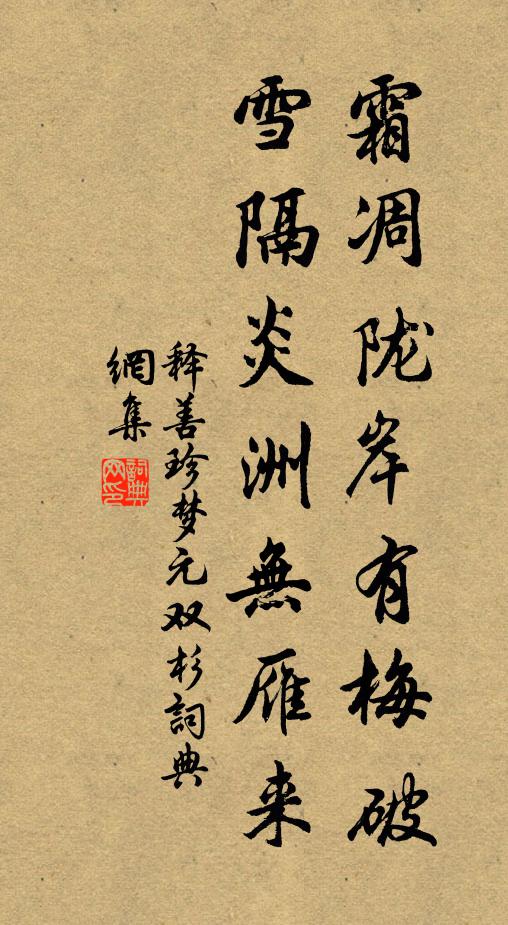 霜凋陇岸有梅破
雪隔炎洲無雁来
释善珍梦元双杉詞典
網集
詞典网印